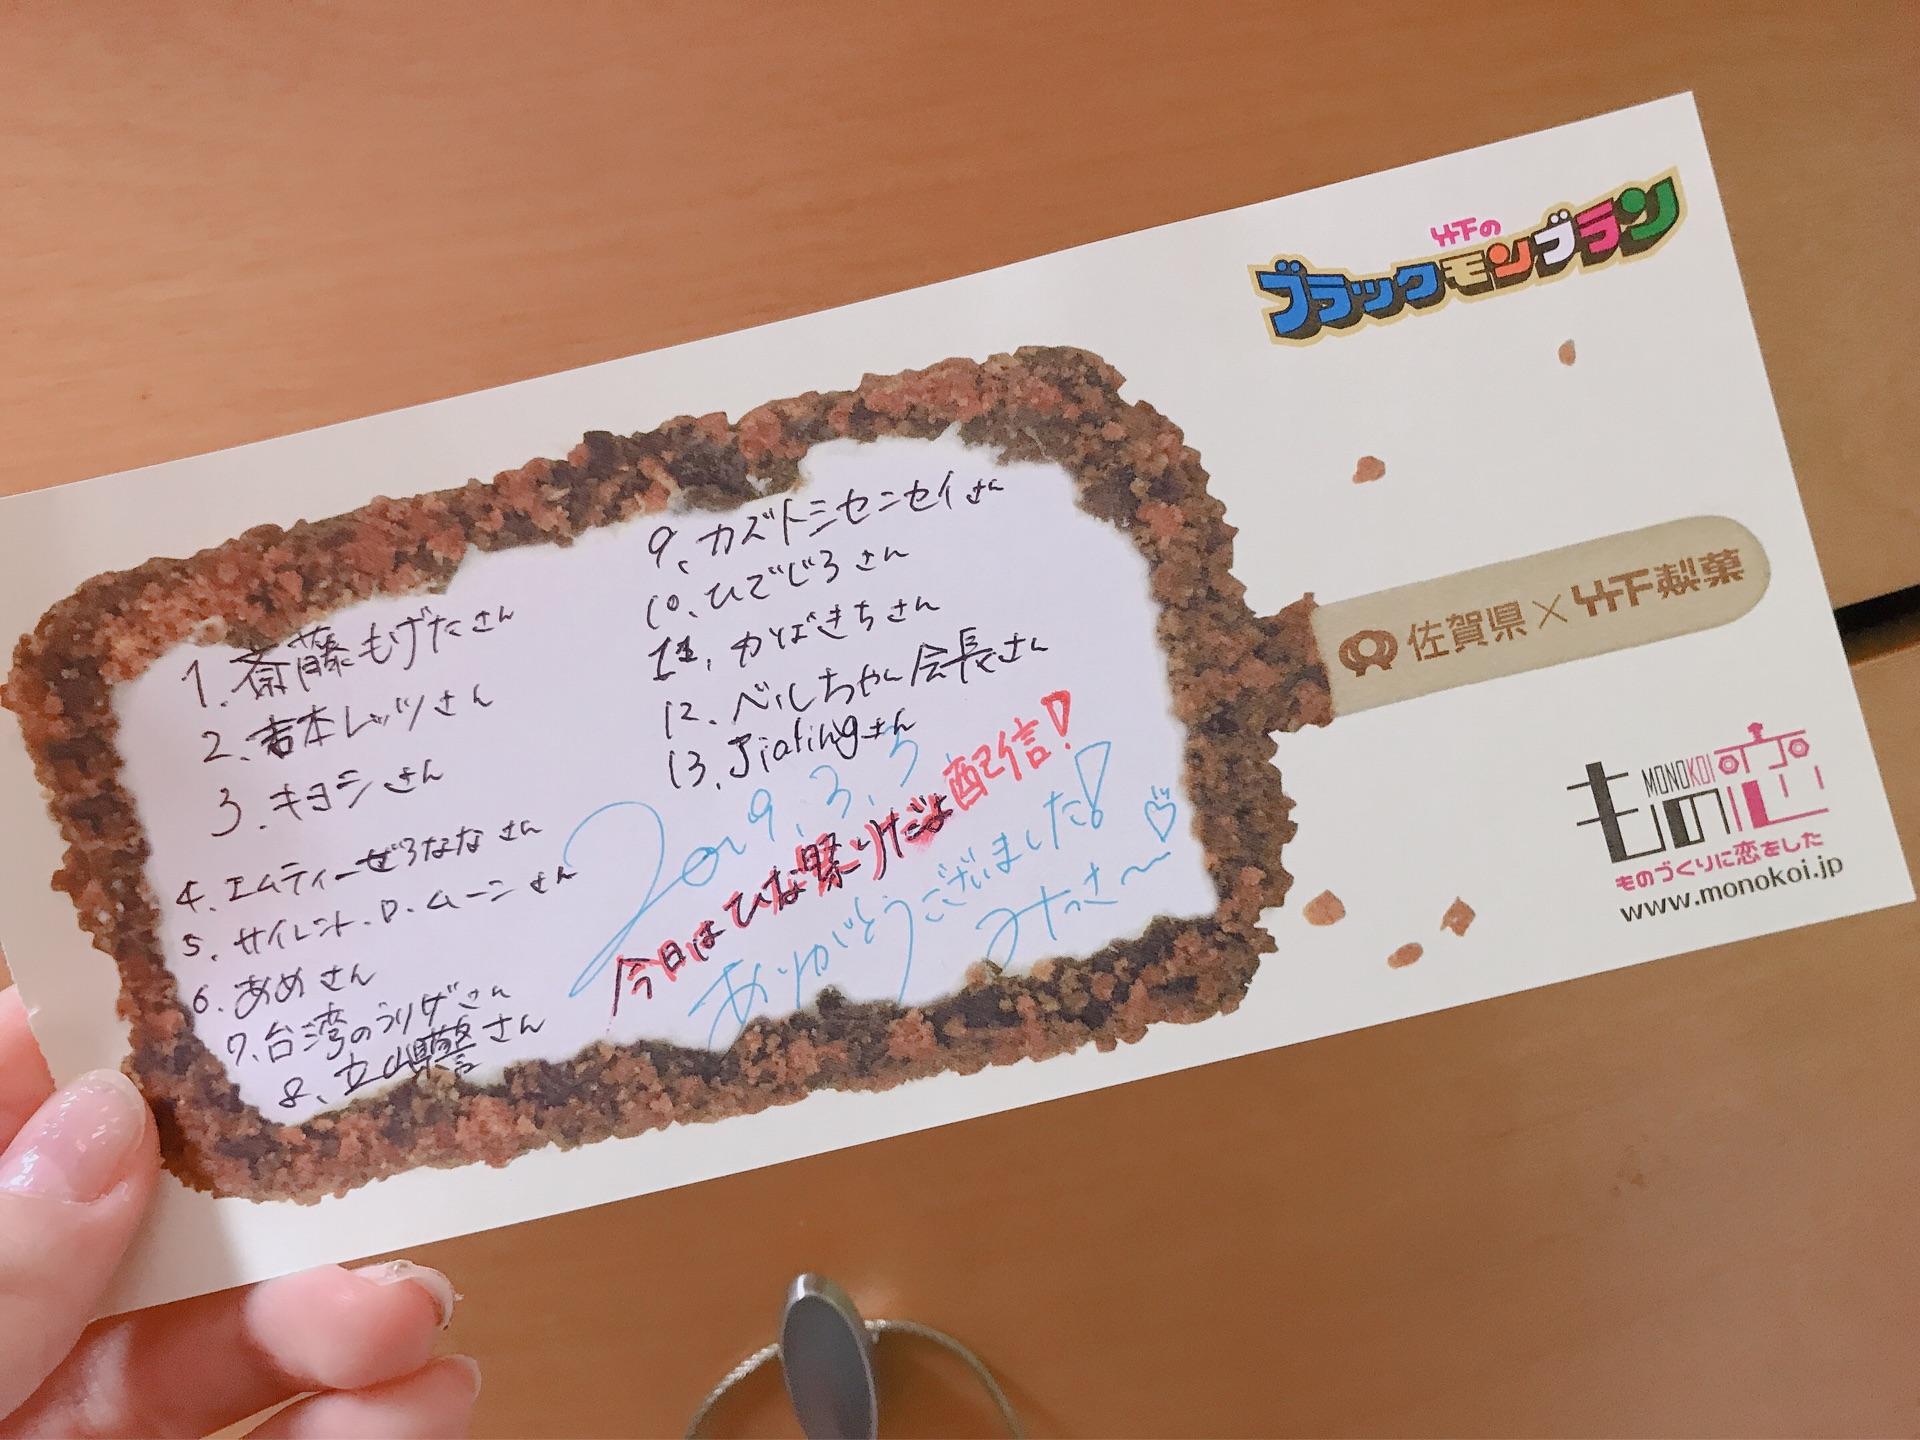 竹下の
ブラックモンブラン
1. 斎藤もげたさん
2. 吉本レッツさん
3. キヨシさん
4. エムティーぜろななさん
5. サイレント.D.ムーンさん
6. あめさん
7. 台湾のうりげさん
8. 立山県警さん
9. カズトミセンセイさん
10. ひでじろさん
11. かばきちさん
12. ベルちゃん会長さん
13. Jiatingさん
2019.3.3
今日はひな祭りだよ配信!
ありがとうございました!
みっさ〜♡
佐賀県×竹下製菓
MONOKOI
もの恋
ものづくりに恋をした
www.monokoi.jp